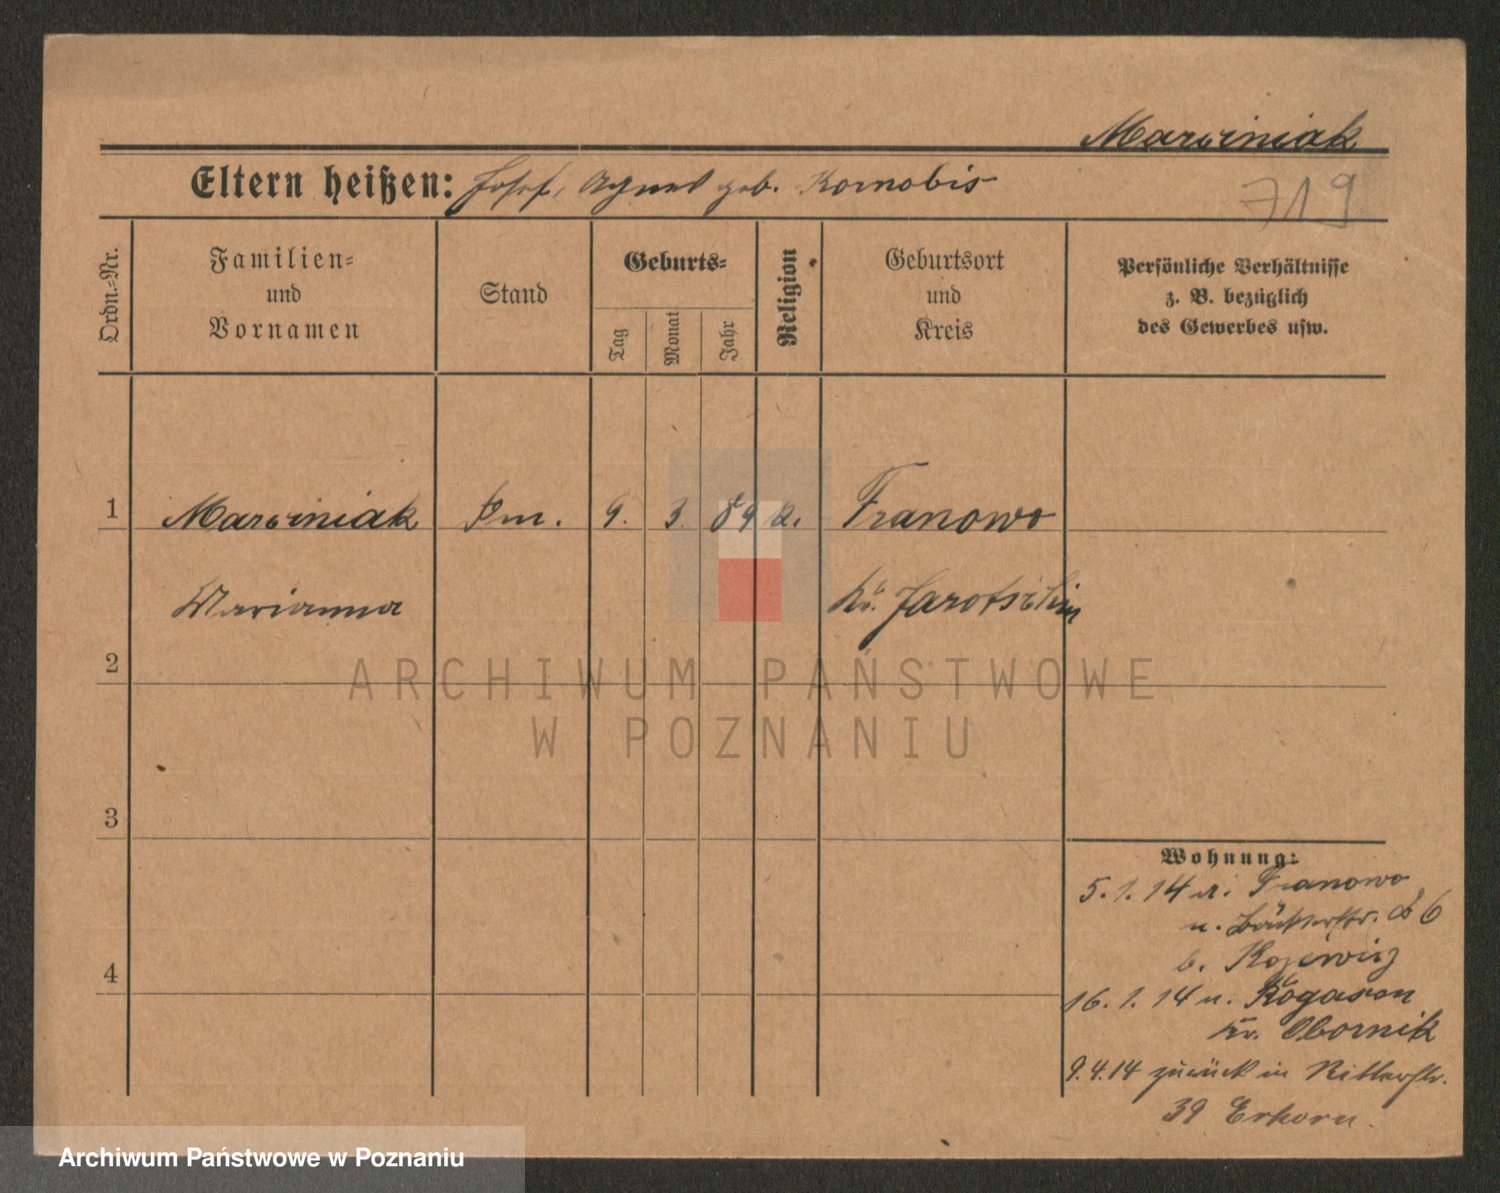 Marciniak
Eltern heißen: Josef, Agnes geb. Kornobis
719
Ordn.-Nr.
Familien-
und
Vornamen
Stand
Geburts-
Tag
Monat
Jahr
Religion
Geburtsort
und
Kreis
Persönliche Verhältnisse
z. B. bezüglich
des Gewerbes usw.
1 Marciniak 9. 3. 89 Franowo
Marianna Kr. Jarotschin
2
ARCHIWUM PAŃSTWOWE
W POZNANIU
3
4
Wohnung:
5. 1. 14 Franowo
n. 6
b.
16. 1. 14 n. Rogasen
Kr. Obornik
9.4.14 zurück in Ritterstr.
39
Archiwum Państwowe w Poznaniu